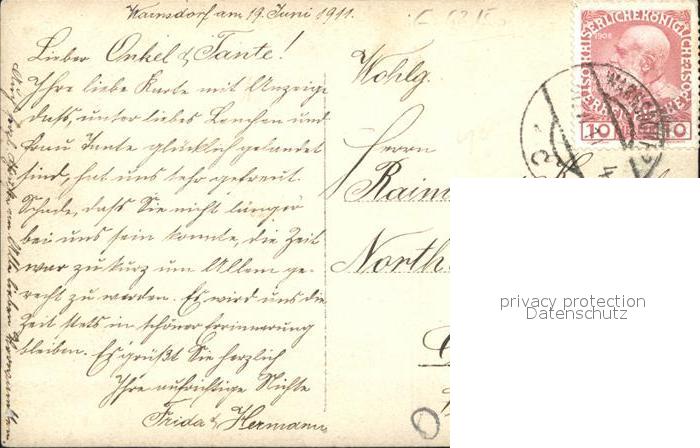 Warnsdorf am 19. Juni 1911.
Lieber Onkel & Tante!
Ihre liebe Karte mit Anzeige
daß, unter liebes Lenchen und
Frau Tante glücklich gelandet
sind, hat uns sehr gefreut.
Schade, daß Sie nicht länger
bei uns sein konnte, die Zeit
war zu kurz um Allem ge-
recht zu werden. Es wird uns die
Zeit stets in schöner Erinnerung
bleiben. Es grüßt Sie herzlich
Ihre aufrichtige Nichte
Frida & Hermann
Wohlg.
Herrn
Raim
North
KAISERLICHE KÖNIGLICHE
1908
10
privacy protection
Datenschutz